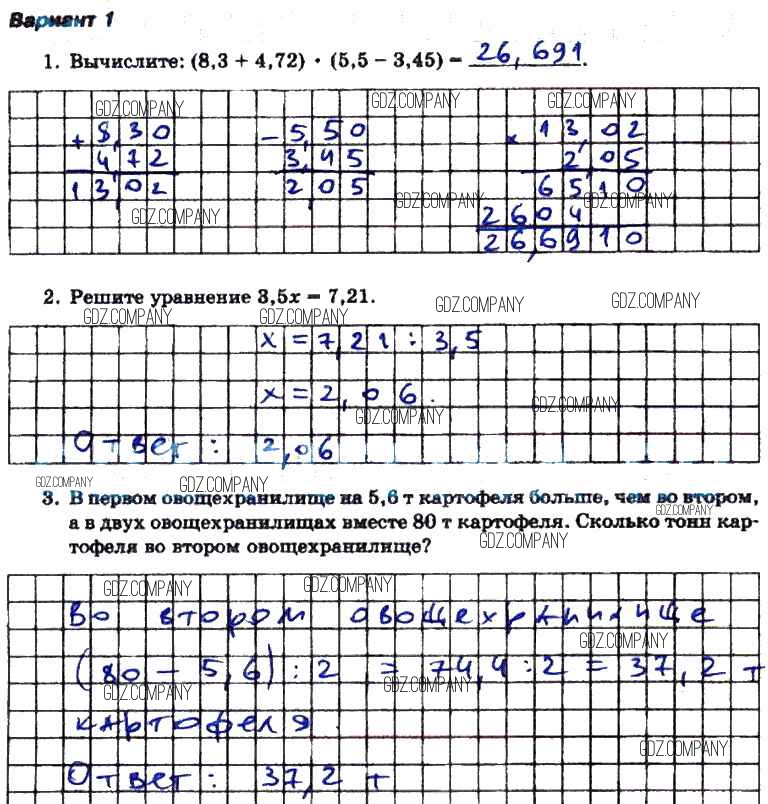 Вариант 1
1. Вычислите: (8,3 + 4,72) · (5,5 − 3,45) = 26,691.
GDZ.COMPANY GDZ.COMPANY GDZ.COMPANY
+ 8,30 − 5,50 × 13,02
4,72 3,45 2,05
13,02 2,05 6510
GDZ.COMPANY GDZ.COMPANY
GDZ.COMPANY 2604
26,6910
2. Решите уравнение 3,5x = 7,21.
GDZ.COMPANY GDZ.COMPANY GDZ.COMPANY GDZ.COMPANY
x = 7,21 : 3,5
x = 2,06.
GDZ.COMPANY GDZ.COMPANY
Ответ: 2,06
GDZ.COMPANY GDZ.COMPANY
3. В первом овощехранилище на 5,6 т картофеля больше, чем во втором,
GDZ.COMPANY
а в двух овощехранилищах вместе 80 т картофеля. Сколько тонн кар-
тофеля во втором овощехранилище?
GDZ.COMPANY
GDZ.COMPANY GDZ.COMPANY
Во втором овощехранилище
GDZ.COMPANY
(80 − 5,6) : 2 = 74,4 : 2 = 37,2 т
GDZ.COMPANY GDZ.COMPANY
картофеля.
GDZ.COMPANY
Ответ: 37,2 т